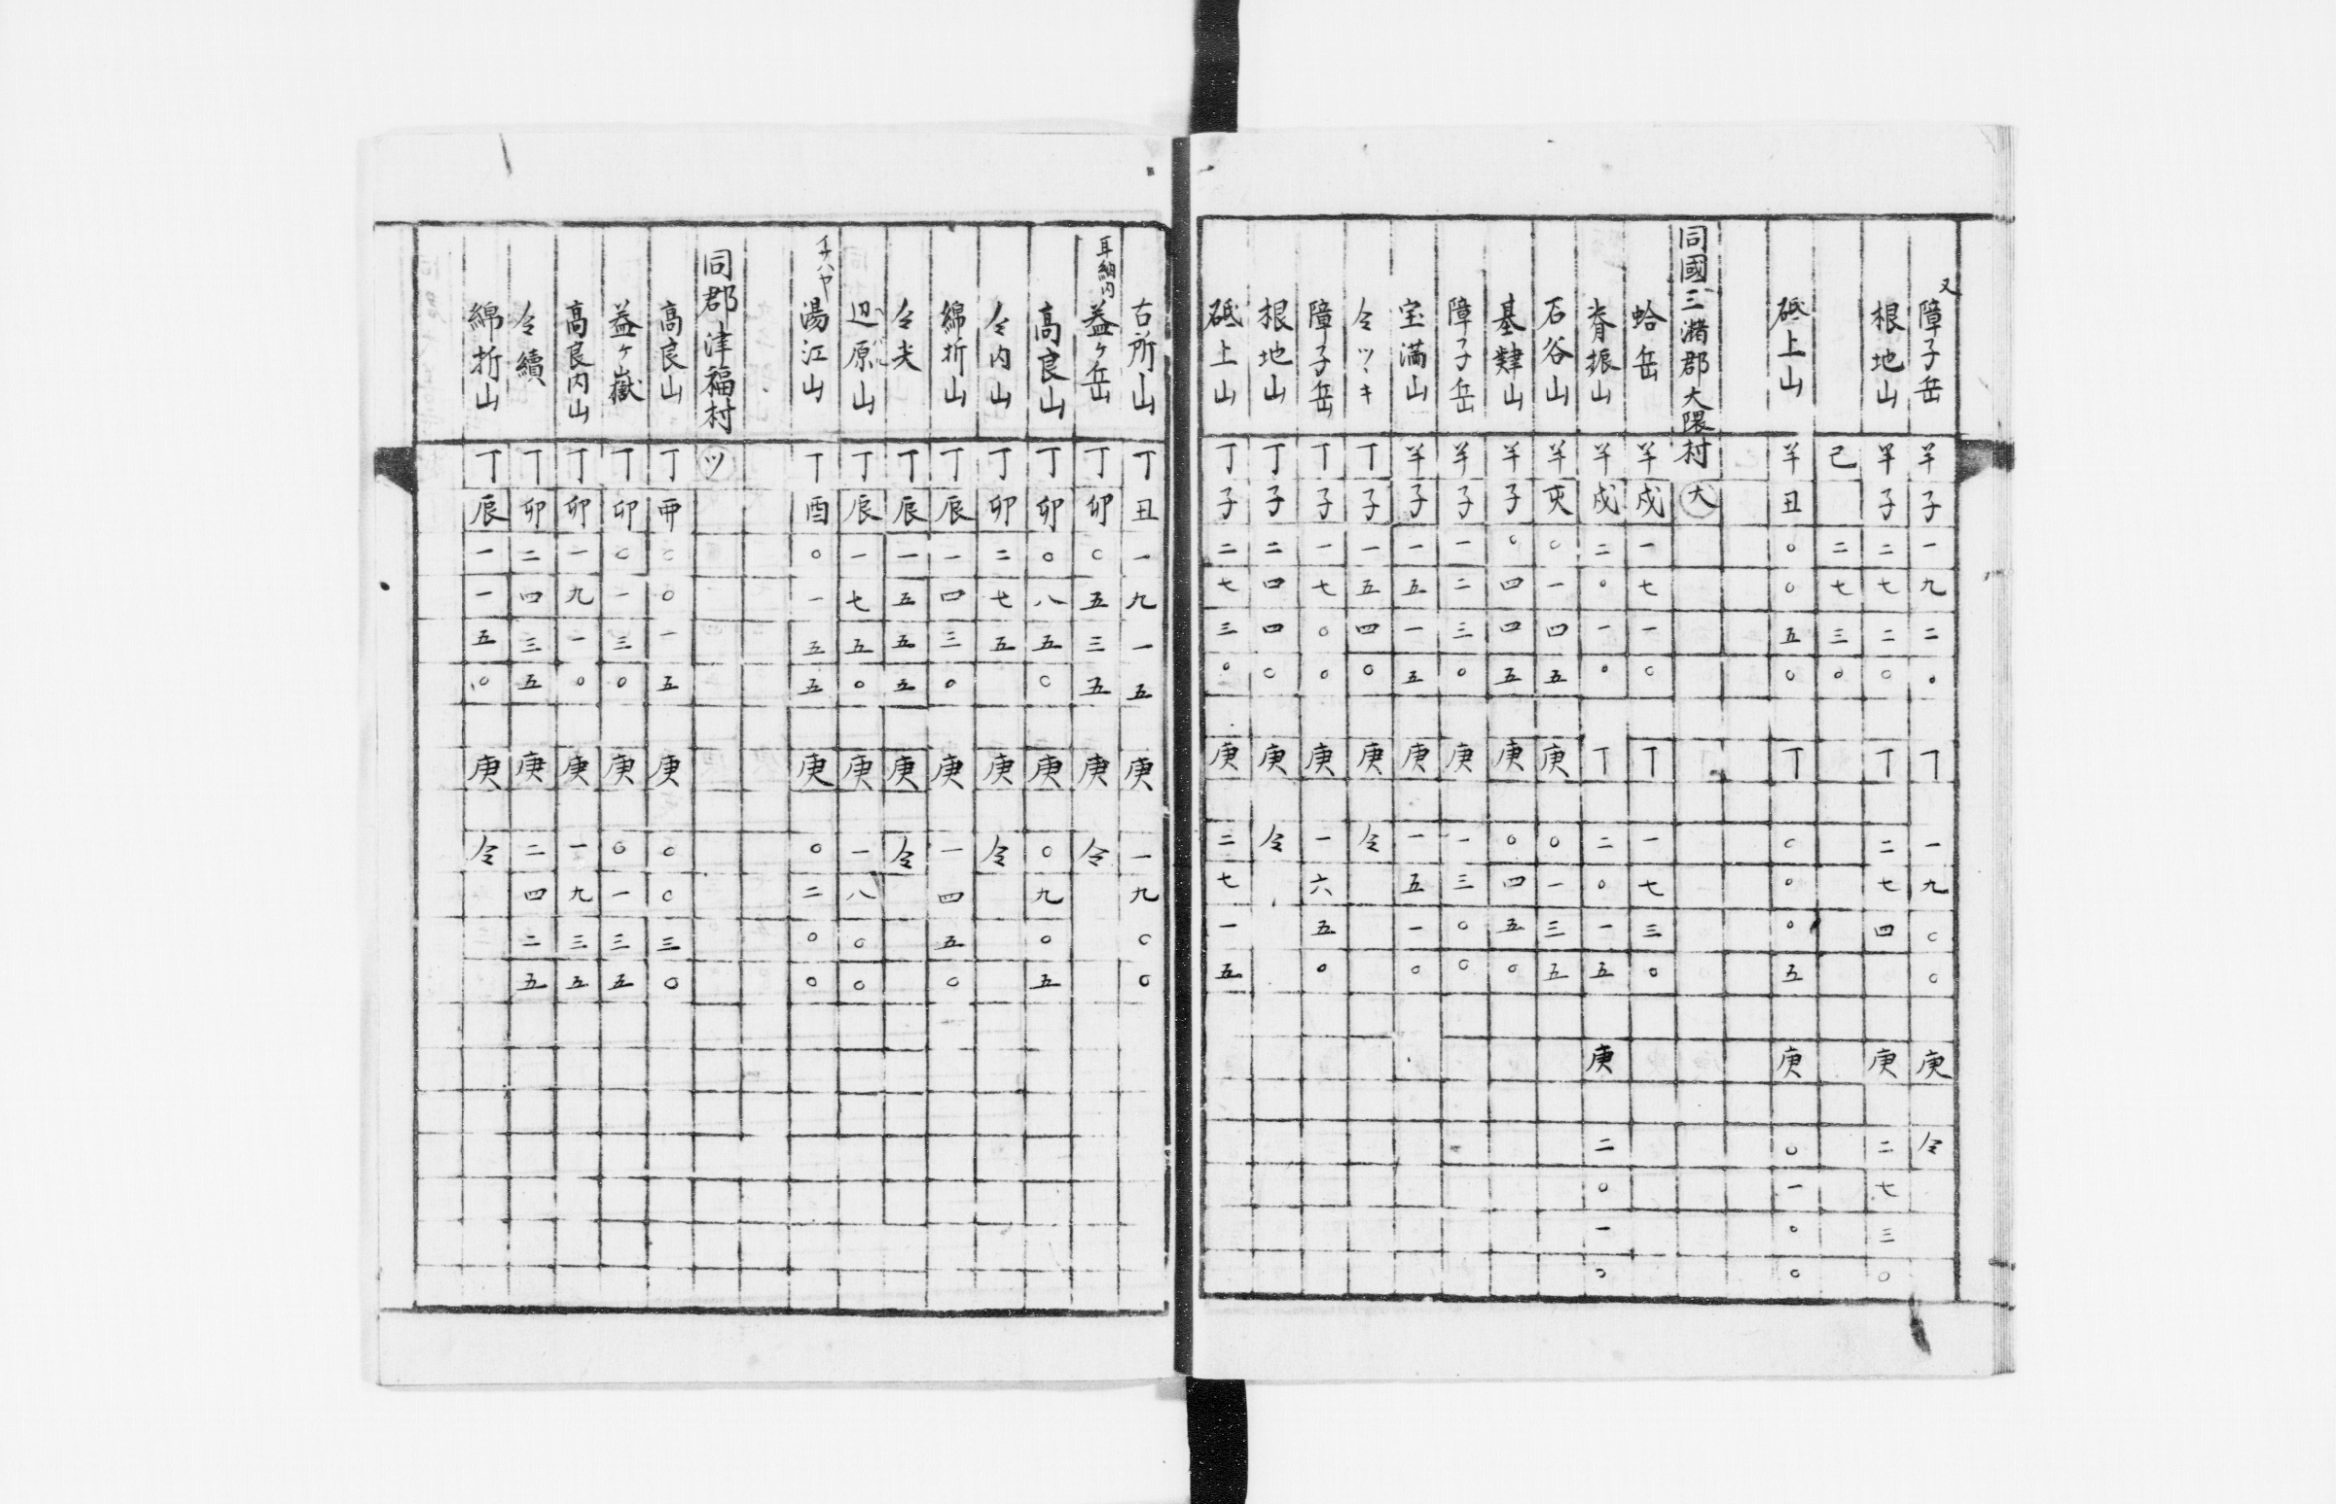 又障子岳 羊子一九二〇 丁 一九〇〇 庚 仝
根地山 羊子二七二〇 丁 二七四 庚 二七三〇
己 二七三〇
砥上山 羊丑〇〇五〇 丁 〇〇〇五 庚 〇一〇〇
同國三潴郡大隈村 大
蛤岳 羊戌一七一〇 丁 一七三〇
脊振山 羊戌二〇一〇 丁 二〇一五 庚 二〇一〇
石谷山 羊亥〇一四五 庚 〇一三五
基肄山 羊子〇四四五 庚 〇四五〇
障子岳 羊子一二三〇 庚 一三〇〇
宝満山 羊子一五一五 庚 一五一〇
仝ツヽキ 丁子一五四〇 庚 仝
障子岳 丁子一七〇〇 庚 一六五〇
根地山 丁子二四四〇 庚 仝
砥上山 丁子二七三〇 庚 二七一五
古所山 丁丑一九一五 庚 一九〇〇
耳納内 益ヶ岳 丁卯〇五三五 庚 仝
高良山 丁卯〇八五〇 庚 〇九〇五
仝内山 丁卯二七五 庚 仝
綿折山 丁辰一四三〇 庚 一四五〇
仝尖 丁辰一五五五 庚 仝
迫原山 丁辰一七五〇 庚 一八〇〇
チハヤ 湯江山 丁酉〇一五五 庚 〇二〇〇
同郡津福村 ツ
高良山 丁卯〇〇一五 庚 〇〇三〇
益ヶ嶽 丁卯〇一三〇 庚 〇一三五
高良内山 丁卯一九一〇 庚 一九三五
仝續 丁卯二四三五 庚 二四二五
綿折山 丁辰一一五〇 庚 仝